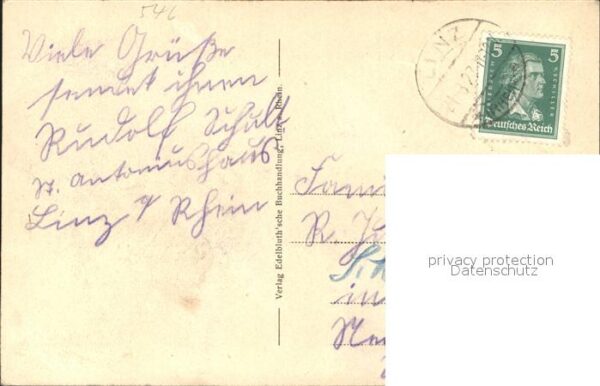 546
Viele Grüße
sendet ihnen
Rudolf Schult
St. Antoniushaus
Linz a/ Rhein
Verlag Edelbluth'sche Buchhandlung, Linz a. Rhein.
LINZ
5 5
F. VON SCHILLER
Deutsches Reich
Fami
R.
in
privacy protection
Datenschutz